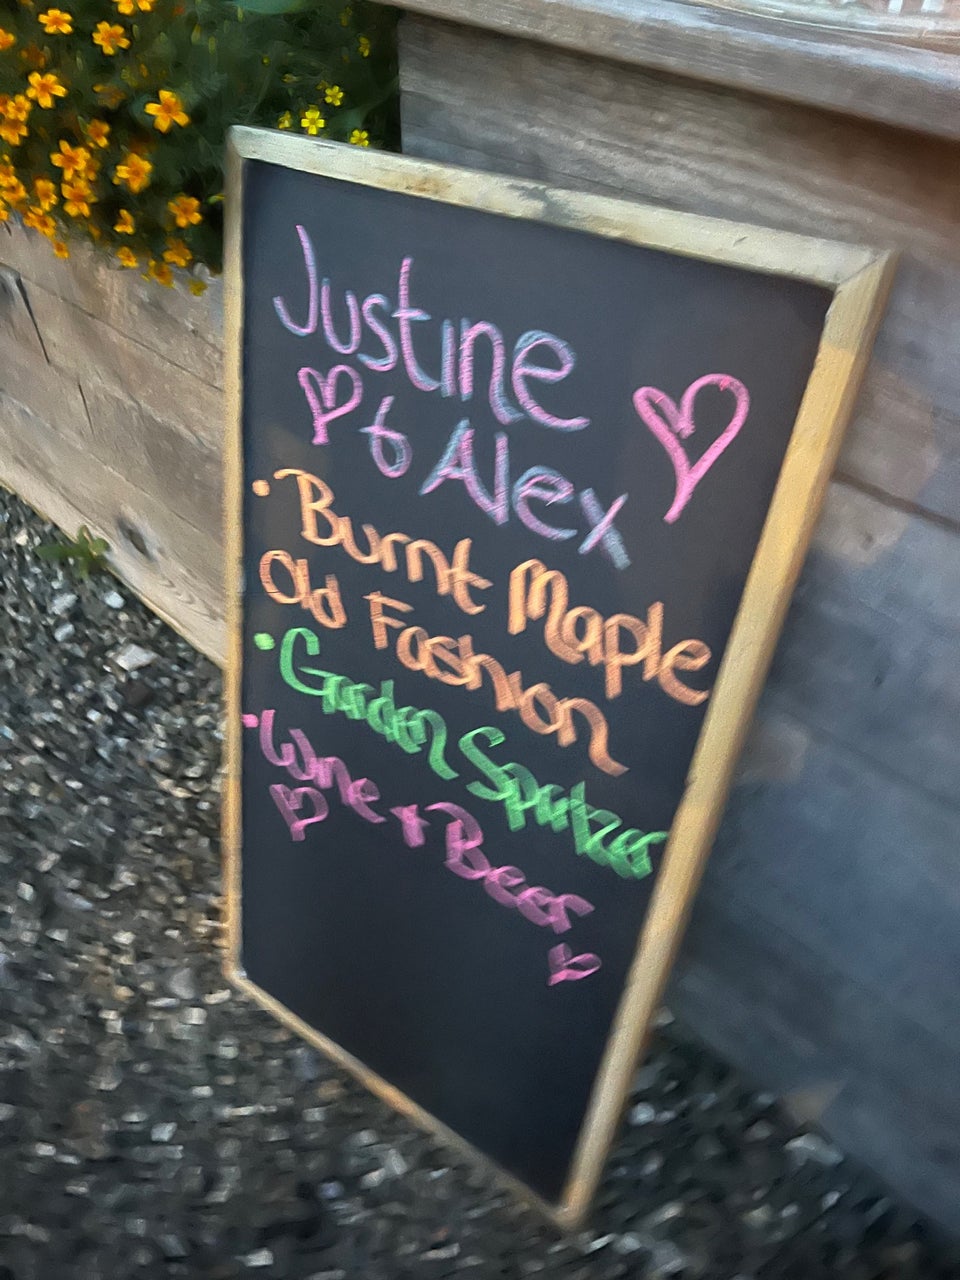 Justine
& Alex
• Burnt Maple
Old Fashion
• Garden Spritzer
• Wine + Beer